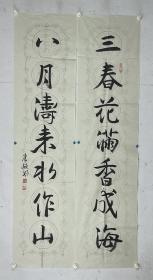 三春花滿香成海
八月濤来水作山